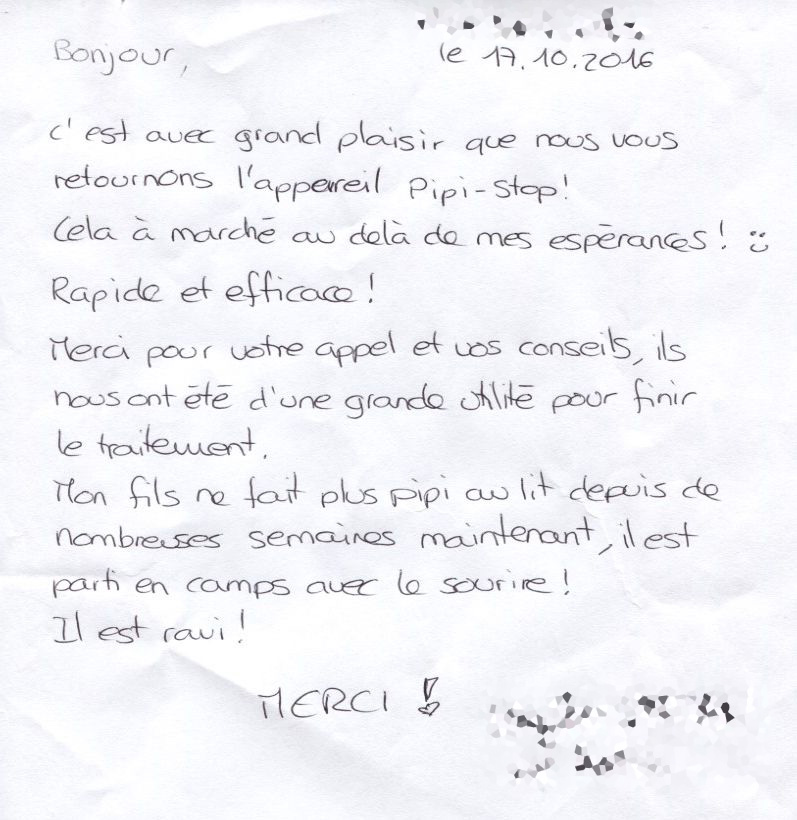 Bonjour,
le 17.10.2016
c'est avec grand plaisir que nous vous
retournons l'appareil Pipi-Stop!
Cela à marché au delà de mes espérances! :)
Rapide et efficace!
Merci pour votre appel et vos conseils, ils
nous ont été d'une grande utilité pour finir
le traitement.
Mon fils ne fait plus pipi au lit depuis de
nombreuses semaines maintenant, il est
parti en camps avec le sourire!
Il est ravi!
MERCI !